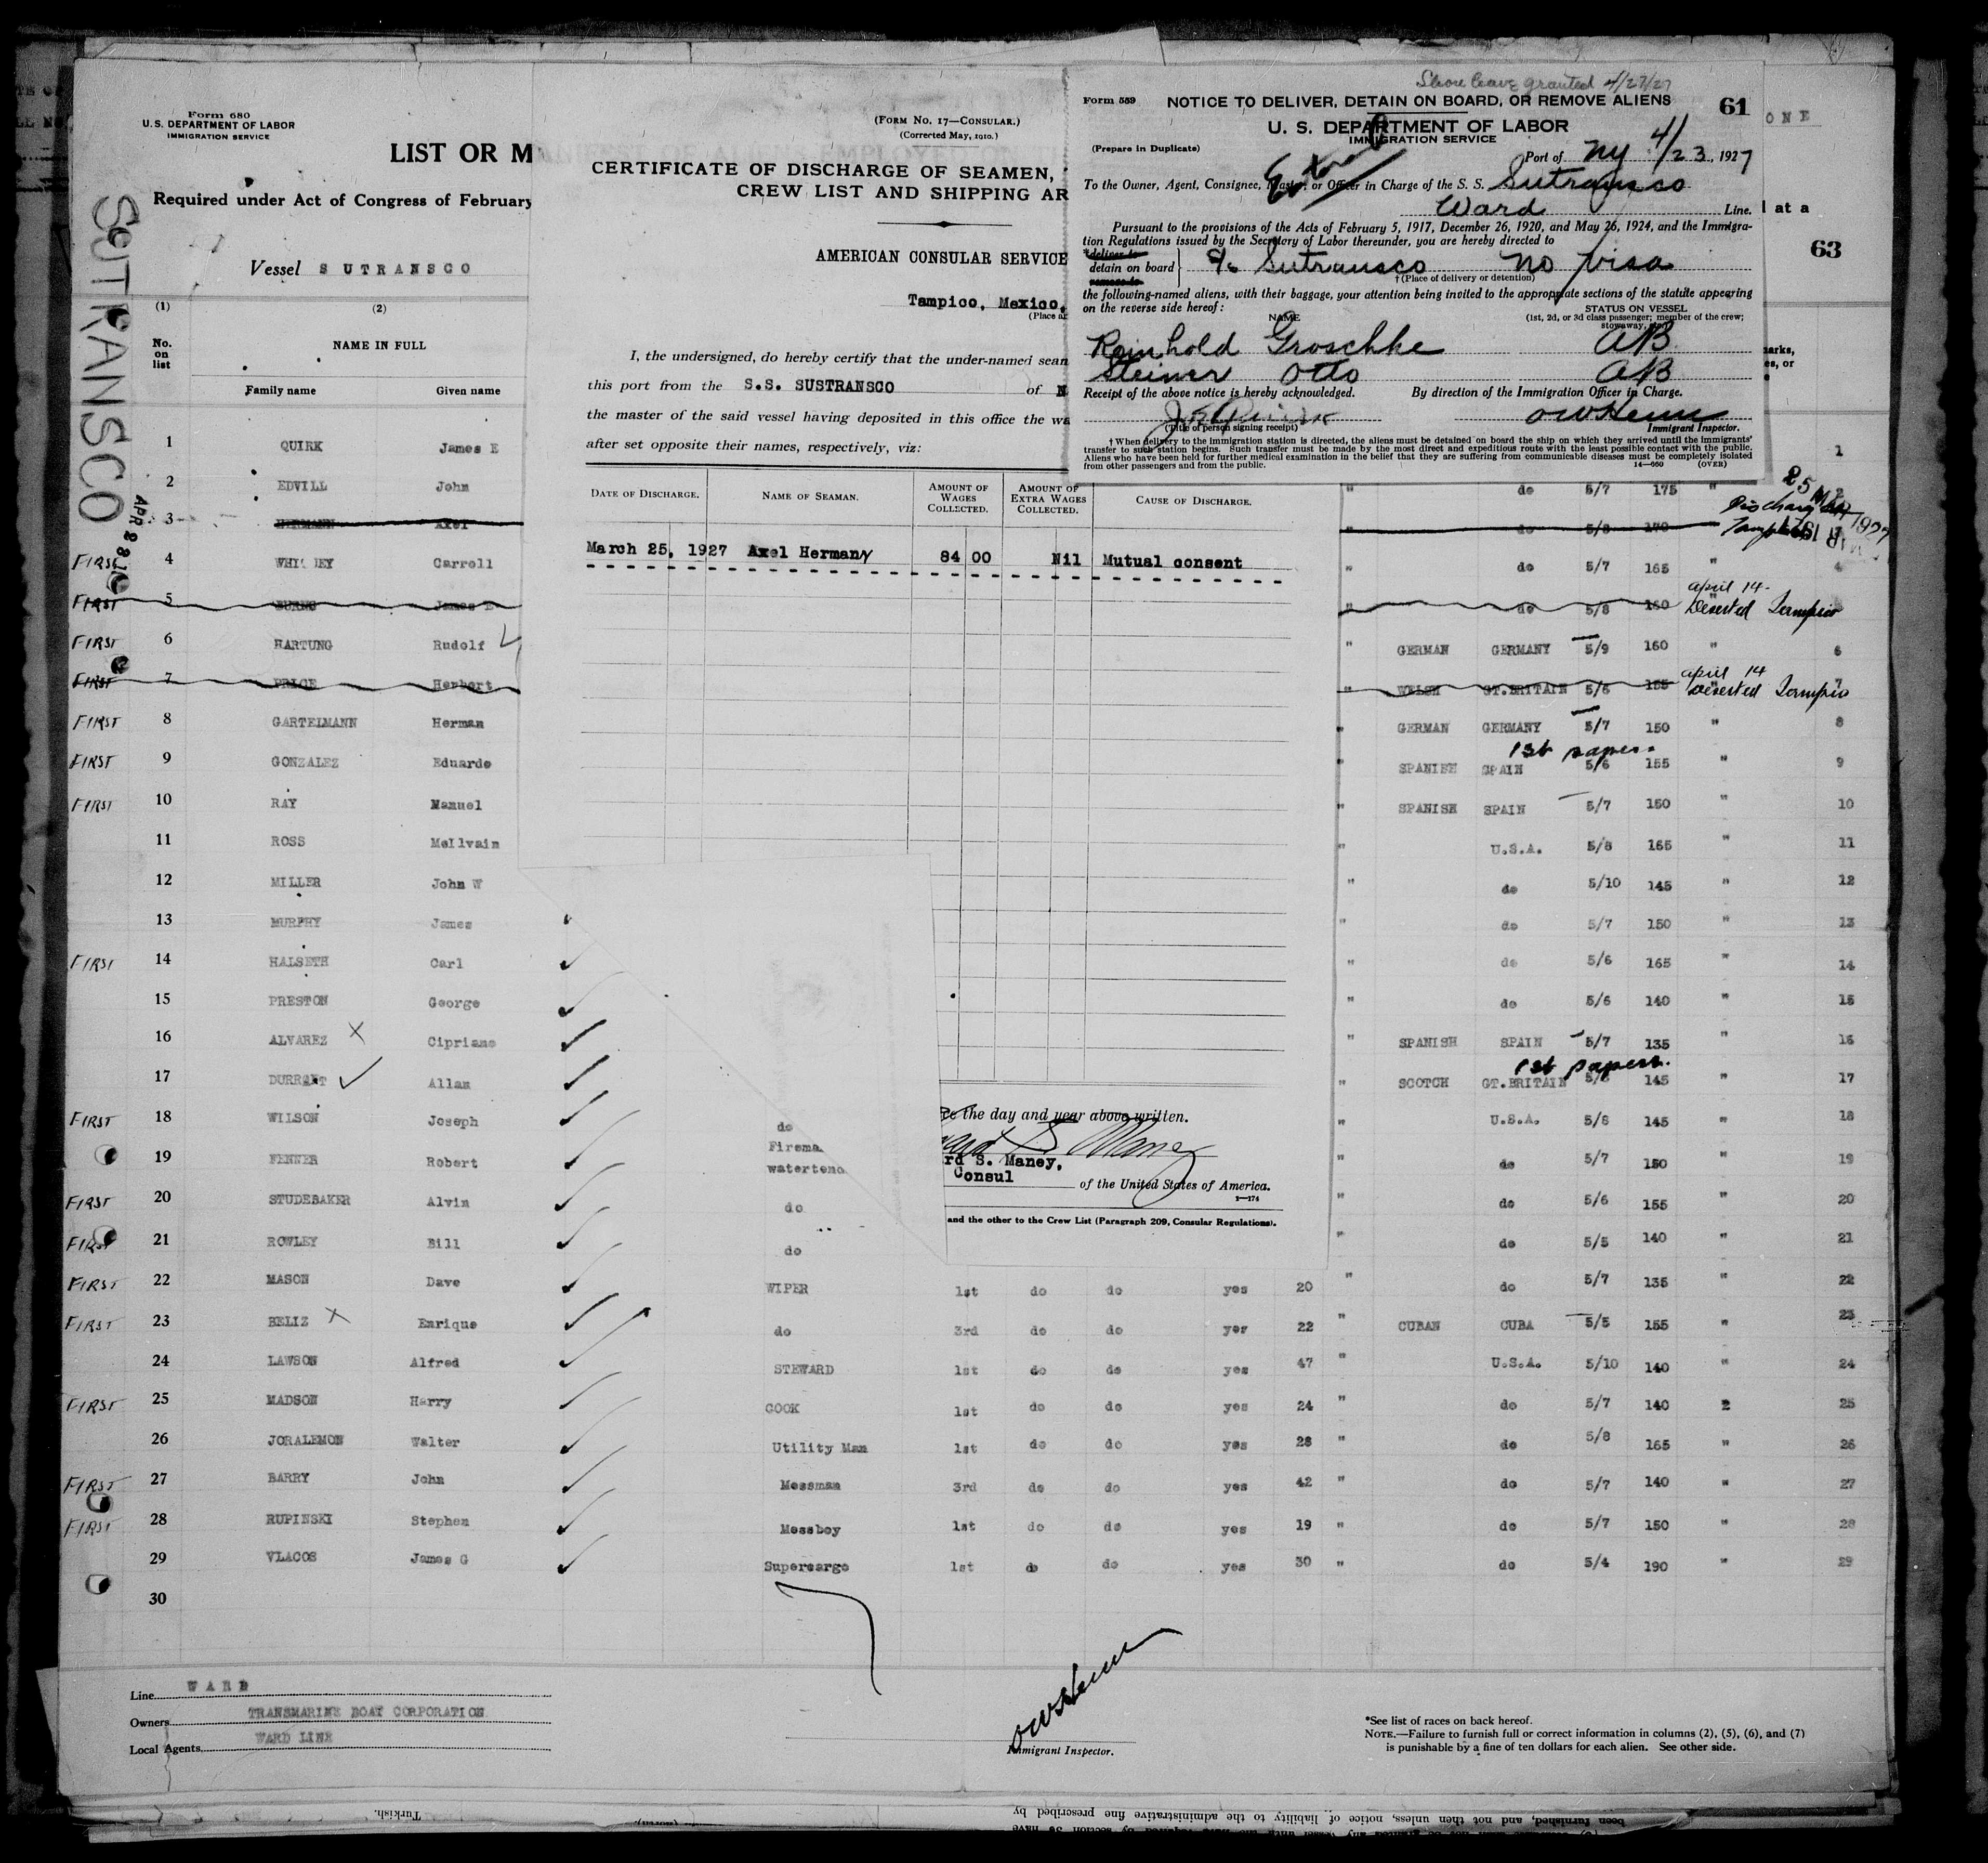 Form 680
U. S. DEPARTMENT OF LABOR
IMMIGRATION SERVICE
LIST OR M
Required under Act of Congress of February
Vessel SUTRANSCO
SUTRANSCO
(1) (2)
No. on list
NAME IN FULL
Family name Given name
1 QUIRK James E
2 EDVILL John
3 HERMANN Axel
FIRST 4 Carroll
FIRST 5 BURNS James E
FIRST 6 HARTUNG Rudolf
FIRST 7 PRICE Herbert
FIRST 8 GARTELMANN Herman
FIRST 9 GONZALEZ Eduardo
FIRST 10 RAY Manuel
11 ROSS McIlvain
12 MILLER John W
13 MURPHY James
FIRST 14 HALSETH Carl
15 PRESTON George
16 ALVAREZ X Cipriano
17 Allan
FIRST 18 WILSON Joseph do
19 FENNER Robert Firema
watertend
FIRST 20 STUDEBAKER Alvin do
FIRST 21 ROWLEY Bill do
FIRST 22 MASON Dave WIPER 1st do do yes 20 " do 5/7 135 " 22
FIRST 23 BELIZ X Enrique do 3rd do do yes 22 " CUBAN CUBA 5/5 155 " 23
24 LAWSON Alfred STEWARD 1st do do yes 47 " U.S.A. 5/10 140 " 24
FIRST 25 MADSON Harry COOK 1st do do yes 24 " do 5/7 140 2 25
26 JORALEMON Walter Utility Man 1st do do yes 28 " do 5/8 165 " 26
FIRST 27 BARRY John Messman 3rd do do yes 42 " do 5/7 140 " 27
FIRST 28 RUPINSKI Stephen Messboy 1st do do yes 19 " do 5/7 150 " 28
29 VLACOS James G Supercargo 1st do do yes 30 " do 5/4 190 " 29
30
Line WARD
Owners TRANSMARINE BOAT CORPORATION
Local Agents WARD LINE
Immigrant Inspector.
*See list of races on back hereof.
NOTE.—Failure to furnish full or correct information in columns (2), (5), (6), and (7)
is punishable by a fine of ten dollars for each alien. See other side.
(FORM NO. 17—CONSULAR.)
(Corrected May, 1910.)
CERTIFICATE OF DISCHARGE OF SEAMEN,
CREW LIST AND SHIPPING AR
AMERICAN CONSULAR SERVICE
Tampico, Mexico,
(Place a
I, the undersigned, do hereby certify that the under-named sean
this port from the S.S. SUSTRANSCO of N
the master of the said vessel having deposited in this office the wa
after set opposite their names, respectively, viz:
DATE OF DISCHARGE. NAME OF SEAMAN. AMOUNT OF WAGES COLLECTED. AMOUNT OF EXTRA WAGES COLLECTED. CAUSE OF DISCHARGE.
March 25, 1927 Axel Hermann 84 00 Nil Mutual consent
the day and year above written.
rd S. Maney,
Consul
of the United States of America.
2—174
and the other to the Crew List (Paragraph 209, Consular Regulations).
Shore leave granted 4/27/27
Form 559 NOTICE TO DELIVER, DETAIN ON BOARD, OR REMOVE ALIENS 61
U. S. DEPARTMENT OF LABOR
IMMIGRATION SERVICE
(Prepare in Duplicate)
Port of NY 4/23, 1927
To the Owner, Agent, Consignee, Master, or Officer in Charge of the S. S. Sutransco
Ward Line.
Pursuant to the provisions of the Acts of February 5, 1917, December 26, 1920, and May 26, 1924, and the Immigra-
tion Regulations issued by the Secretary of Labor thereunder, you are hereby directed to
*deliver to
detain on board
remove to
Sutransco no visa
†(Place of delivery or detention)
the following-named aliens, with their baggage, your attention being invited to the appropriate sections of the statute appearing
on the reverse side hereof:
NAME
STATUS ON VESSEL
(1st, 2d, or 3d class passenger; member of the crew;
stowaway, etc.)
Reinhold Groschke AB
Steiner Otto AB
Receipt of the above notice is hereby acknowledged. By direction of the Immigration Officer in Charge.
(Title of person signing receipt)
Immigrant Inspector.
†When delivery to the immigration station is directed, the aliens must be detained on board the ship on which they arrived until the immigrants'
transfer to such station begins. Such transfer must be made by the most direct and expeditious route with the least possible contact with the public.
Aliens who have been held for further medical examination in the belief that they are suffering from communicable diseases must be completely isolated
from other passengers and from the public.
14—660 (OVER)
ONE
at a
63
1
" do 5/7 175 " 2
" do 5/8 170
" do 5/7 165 " 4
" do 5/8 160 april 14 Deserted Tampico
" GERMAN GERMANY 5/9 160 " 6
" WELSH GT.BRITAIN 5/6 155 april 14 Deserted Tampico 7
" GERMAN GERMANY 5/7 150 " 8
1st papers
" SPANISH SPAIN 5/6 155 " 9
" SPANISH SPAIN 5/7 150 " 10
" U.S.A. 5/8 165 11
" do 5/10 145 " 12
" do 5/7 150 " 13
" do 5/6 165 " 14
" do 5/6 140 " 15
" SPANISH SPAIN 5/7 135 " 16
1st papers.
" SCOTCH GT.BRITAIN 145 " 17
" U.S.A. 5/8 145 " 18
" do 5/7 150 " 19
" do 5/6 155 " 20
" do 5/5 140 " 21
Turkish.
been furnished, and not then unless, notice of liability to the administrative fine prescribed by